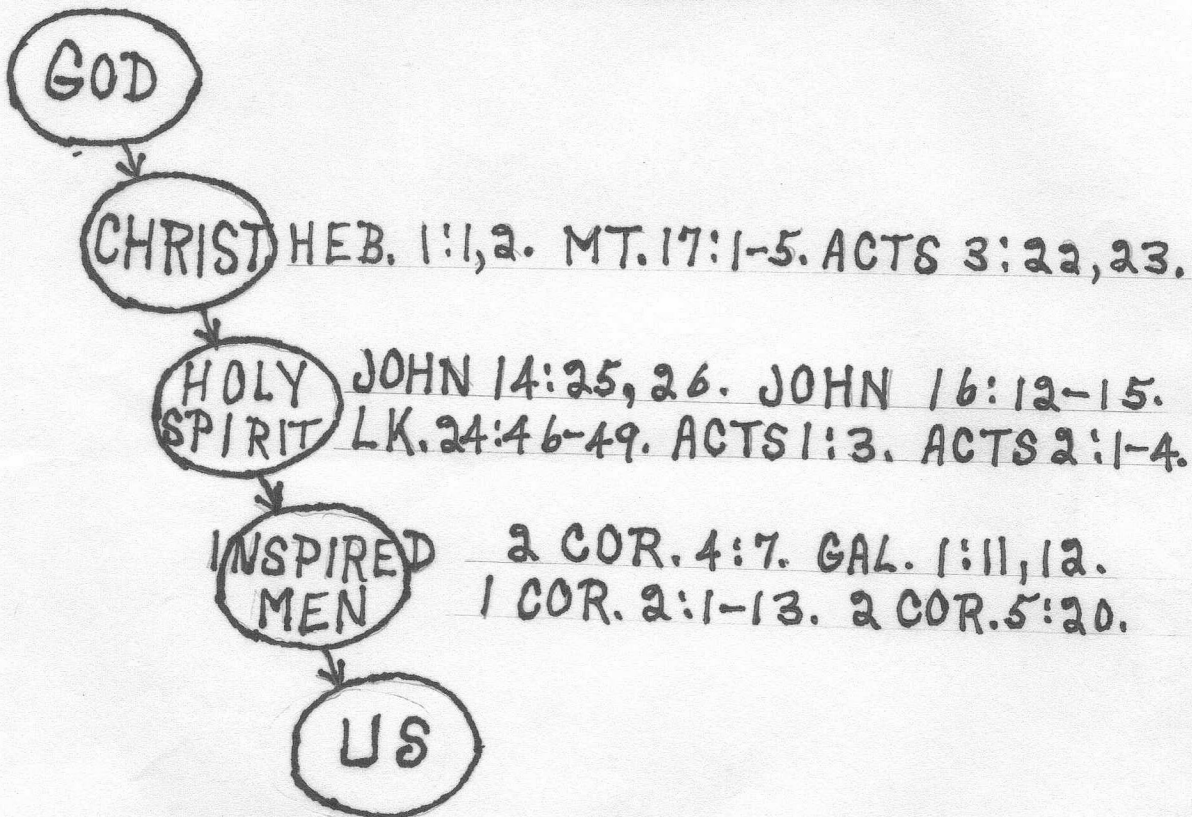 GOD
CHRIST HEB. 1:1,2. MT. 17:1-5. ACTS 3:22,23.
HOLY JOHN 14:25,26. JOHN 16:12-15.
SPIRIT LK. 24:46-49. ACTS 1:3. ACTS 2:1-4.
INSPIRED 2 COR. 4:7. GAL. 1:11,12.
MEN 1 COR. 2:1-13. 2 COR. 5:20.
US